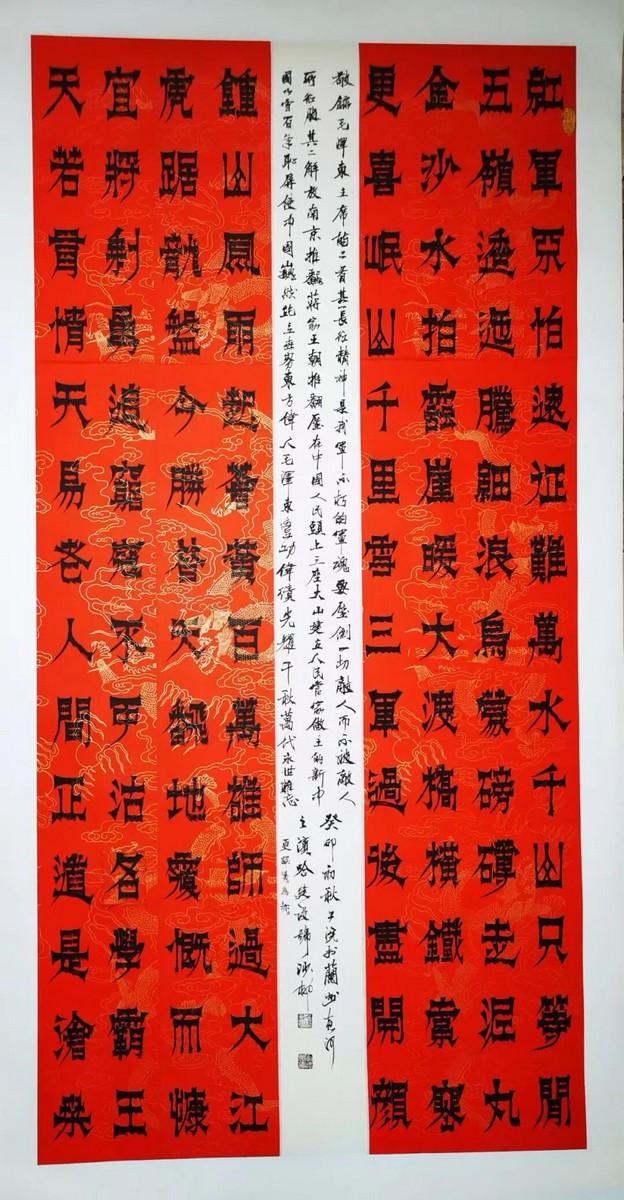 紅軍不怕遠征難萬水千山只等閒
五嶺逶迤騰細浪烏蒙磅礴走泥丸
金沙水拍雲崖暖大渡橋橫鐵索寒
更喜岷山千里雪三軍過後盡開顏
敬錄毛澤東主席詩二首其一長征精神是我軍不朽的軍魂要壓倒一切敵人而不被敵人
所征服其二解放南京推翻蔣家王朝推翻壓在中國人民頭上三座大山建立人民當家做主的新中
國以雪百年恥辱使中國巍然屹立世界東方偉人毛澤東豐功偉績光耀千秋萬代永世難忘
癸卯初秋
鍾山風雨起蒼黃百萬雄師過大江
虎踞龍盤今勝昔天翻地覆慨而慷
宜將剩勇追窮寇不可沽名學霸王
天若有情天易老人間正道是滄桑